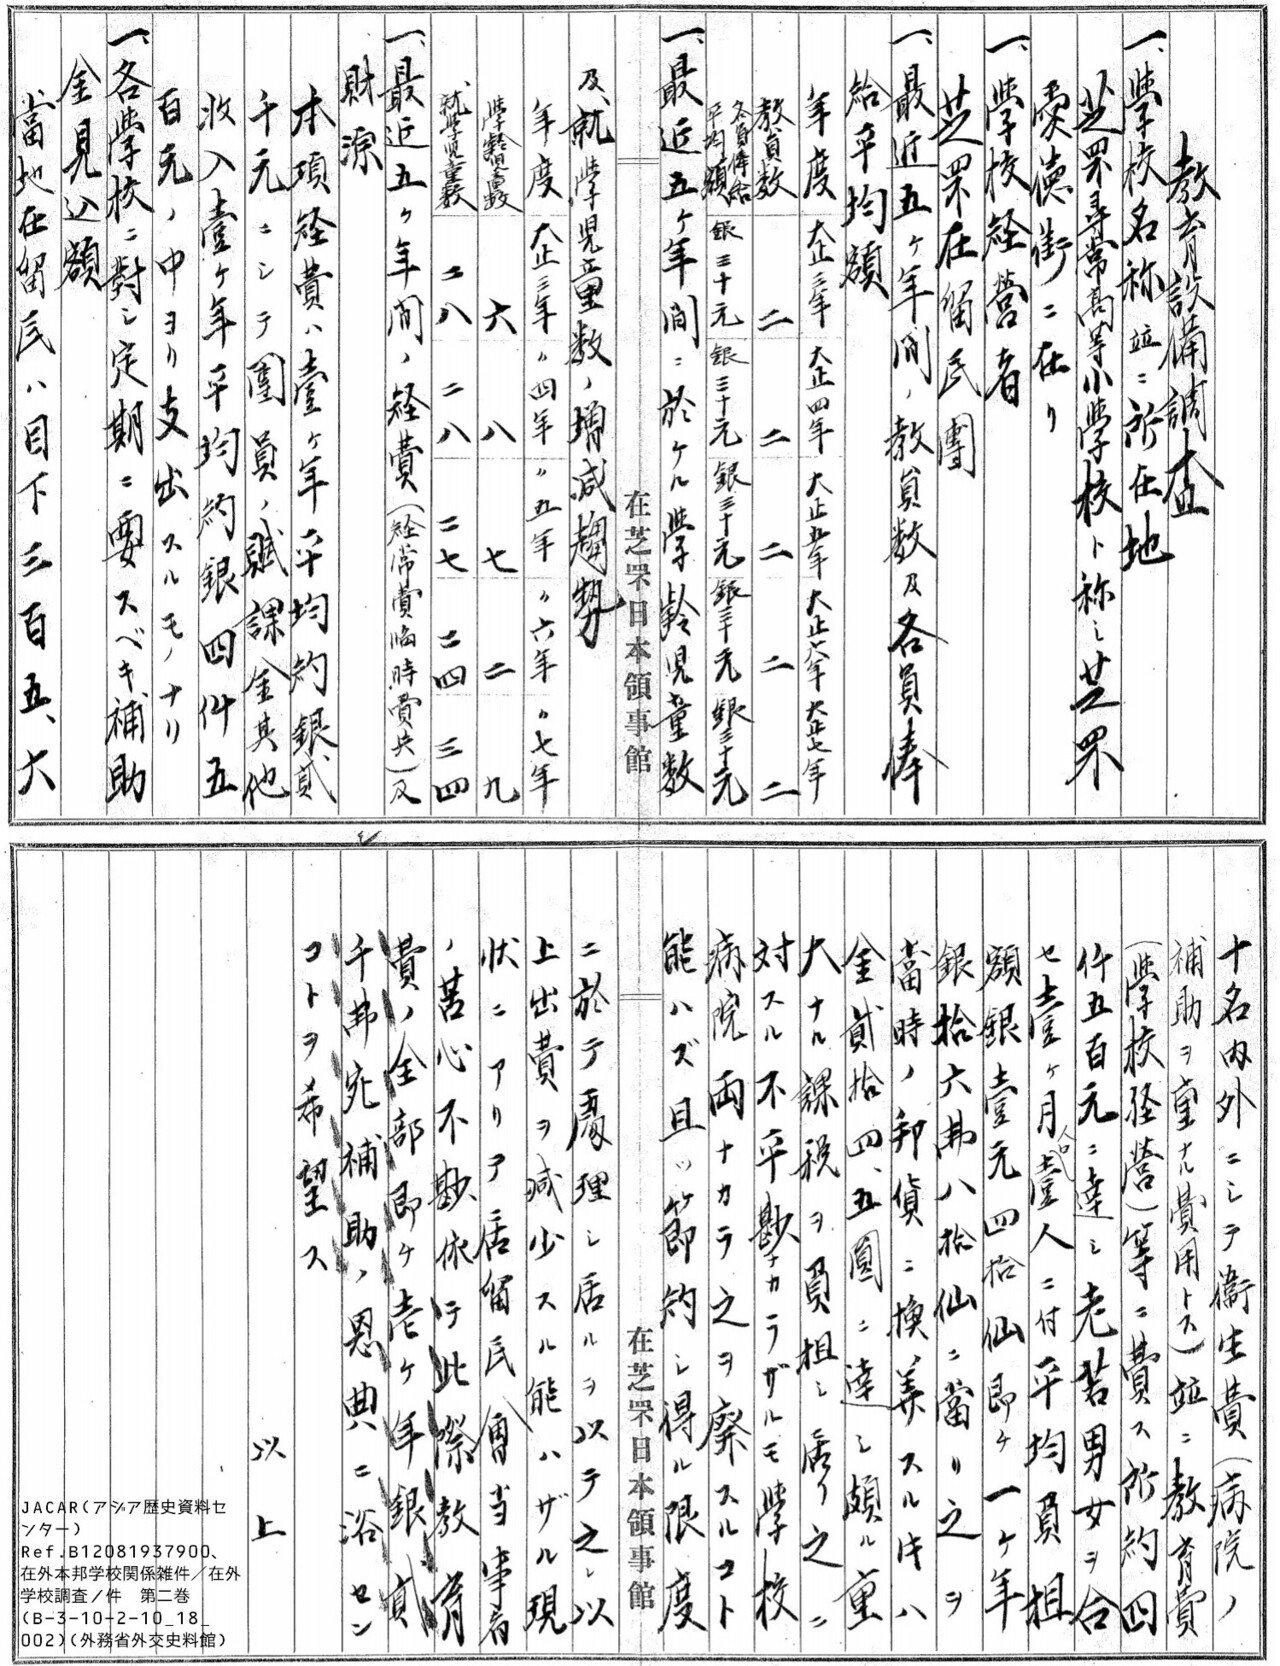 教育設備調査
一、学校名称並ニ所在地
芝罘尋常高等小学校ト称シ芝罘
愛徳街ニ在リ
一、学校経営者
芝罘在留民團
一、最近五ヶ年間ノ教員数及各員俸
給平均額
年度 大正三年 大正四年 大正五年 大正六年 大正七年
教員数 二 二 二 二 二
各員俸給平均額 銀三十元 銀三十元 銀三十元 銀三十元 銀三十元
一、最近五ヶ年間ニ於ケル学齢児童数
在芝罘日本領事館
及就学児童数ノ増減趨勢
年度 大正三年 〃四年 〃五年 〃六年 〃七年
学齢児童数 六 八 七 二 九
就学児童数 二八 二八 二七 二四 三四
一、最近五ヶ年間ノ経費(経常費臨時費共)及
財源
本項経費ハ壹ヶ年平均約銀貳
千元ニシテ團員ノ賦課金其他
收入壹ヶ年平均約銀四仟五
百元ノ中ヨリ支出スルモノナリ
一、各学校ニ對シ定期ニ要スベキ補助
金見込額
當地在留民ハ目下三百五、六
十名内外ニシテ衛生費(病院ノ
補助ヲ重ナル費用トス)並ニ教育費
(学校経営)等ニ費ス所約四
仟五百元ニ達シ老若男女ヲ合
セ壹ヶ月壹人ニ付平均負担
額銀壹元四拾仙即チ一ヶ年
銀拾六弗八拾仙ニ當リ之ヲ
當時ノ邦貨ニ換算スル時ハ
金貳拾四、五圓ニ達シ頗ル重
大ナル課税ヲ負担シ居リ之ニ
対スル不平尠ナカラザルモ学校
病院両ナカラ之ヲ廃スルコト
能ハズ且ツ節約シ得ル限度
在芝罘日本領事館
ニ於テ處理シ居ルヲ以テ之レ以
上出費ヲ減少スル能ハザル現
状ニアリテ居留民會当事者
ノ苦心不尠依テ此際教育
費ノ全部即チ壱ヶ年銀貳
千弗宛補助ノ恩典ニ浴セン
コトヲ希望ス
以上
JACAR(アジア歴史資料セ
ンター)
Ref.B12081937900、
在外本邦学校関係雑件／在外
学校調査ノ件　第二巻
(B-3-10-2-10_18_
002)(外務省外交史料館)